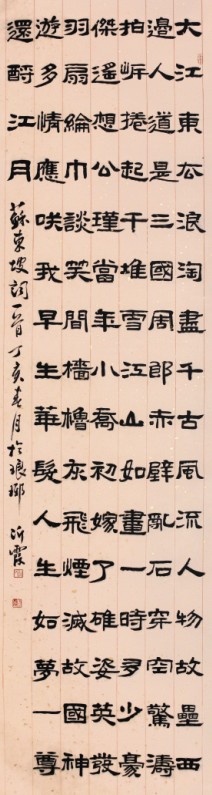 大江東去浪淘盡千古風流人物故壘西
邊人道是三國周郎赤壁亂石穿空驚濤
拍岸捲起千堆雪江山如畫一時多少豪
傑遙想公瑾當年小喬初嫁了雄姿英發
羽扇綸巾談笑間檣櫓灰飛煙滅故國神
遊多情應咲我早生華髮人生如夢一尊
還酹江月
蘇東坡詞一首丁亥春月於琅琊 沂